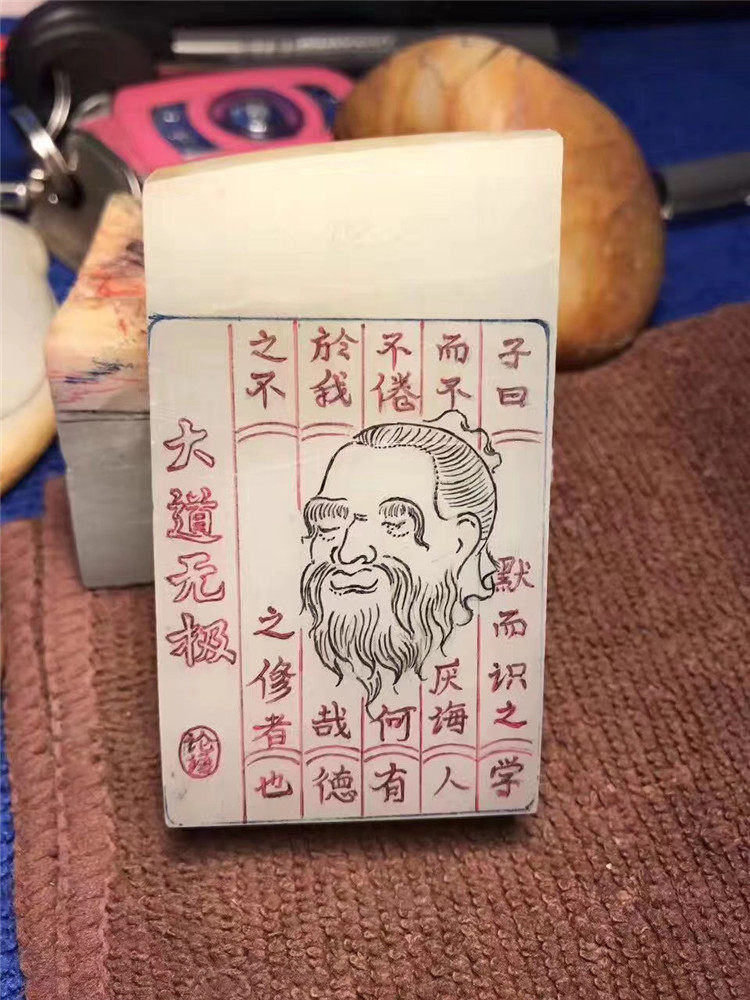 子曰默而识之学
而不厌诲人
不倦何有
於我哉德
之不之修者也
大道无极